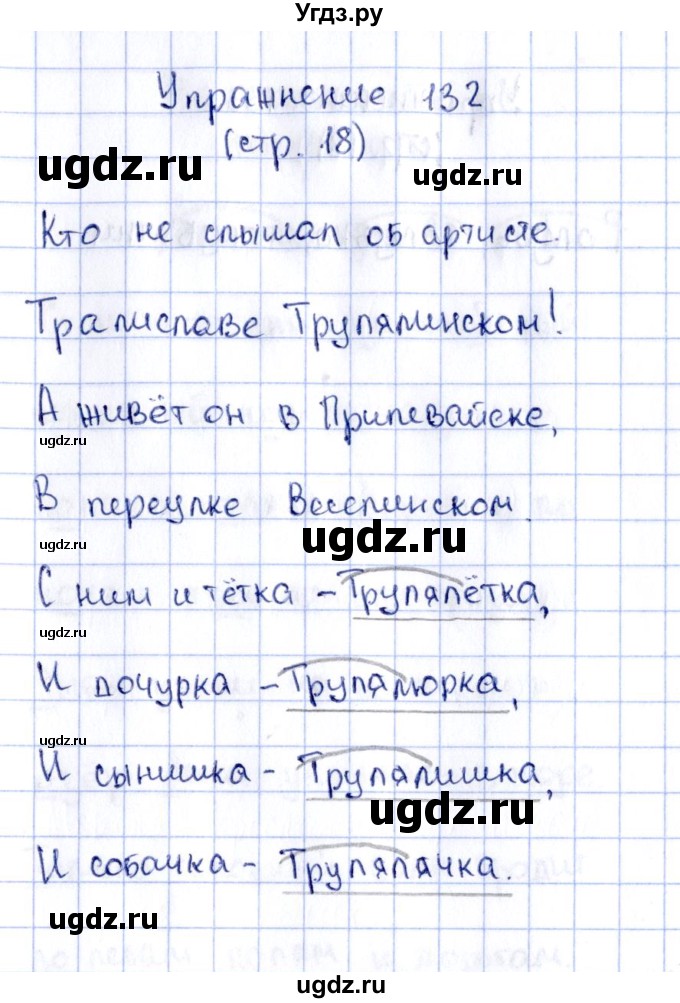 Угдз.ру
Упражнение 132
(стр. 18)
ugdz.ru
ugdz.ru
Кто не слышал об артисте.
Тралиславе Труляминском!
А живёт он в Припевайске,
ugdz.ru
В переулке Веселинском.
ugdz.ru
ugdz.ru
С ним и тётка – Трулялётка,
ugdz.ru
И дочурка – Труляlюрка,
ugdz.ru
И сынишка – Трулялишка,
ugdz.ru
И собачка – Трулялячка.
ugdz.ru
ugdz.ru